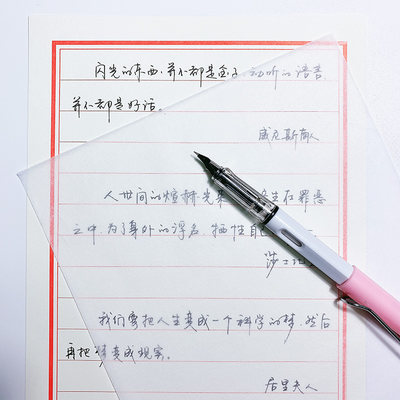 闪光的东西,并不都是金子,动听的语言,
并不都是好话。
威尼斯商人
人世间的煊赫光荣 生在罪恶
之中,为了身外的浮名,牺牲自
莎士比
我们要把人生变成一个科学的梦,然后
再把梦变成现实。
居里夫人